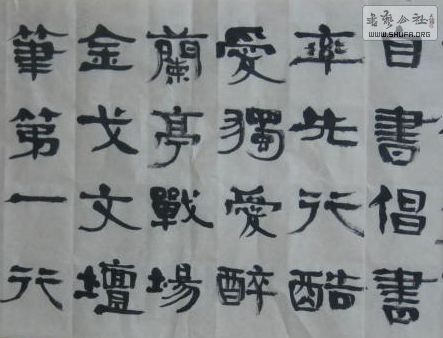 書藝公社
WWW.SHUFA.ORG
書倡書
率先行酷
愛獨愛醉
蘭亭戰場
金戈文壇
筆第一行